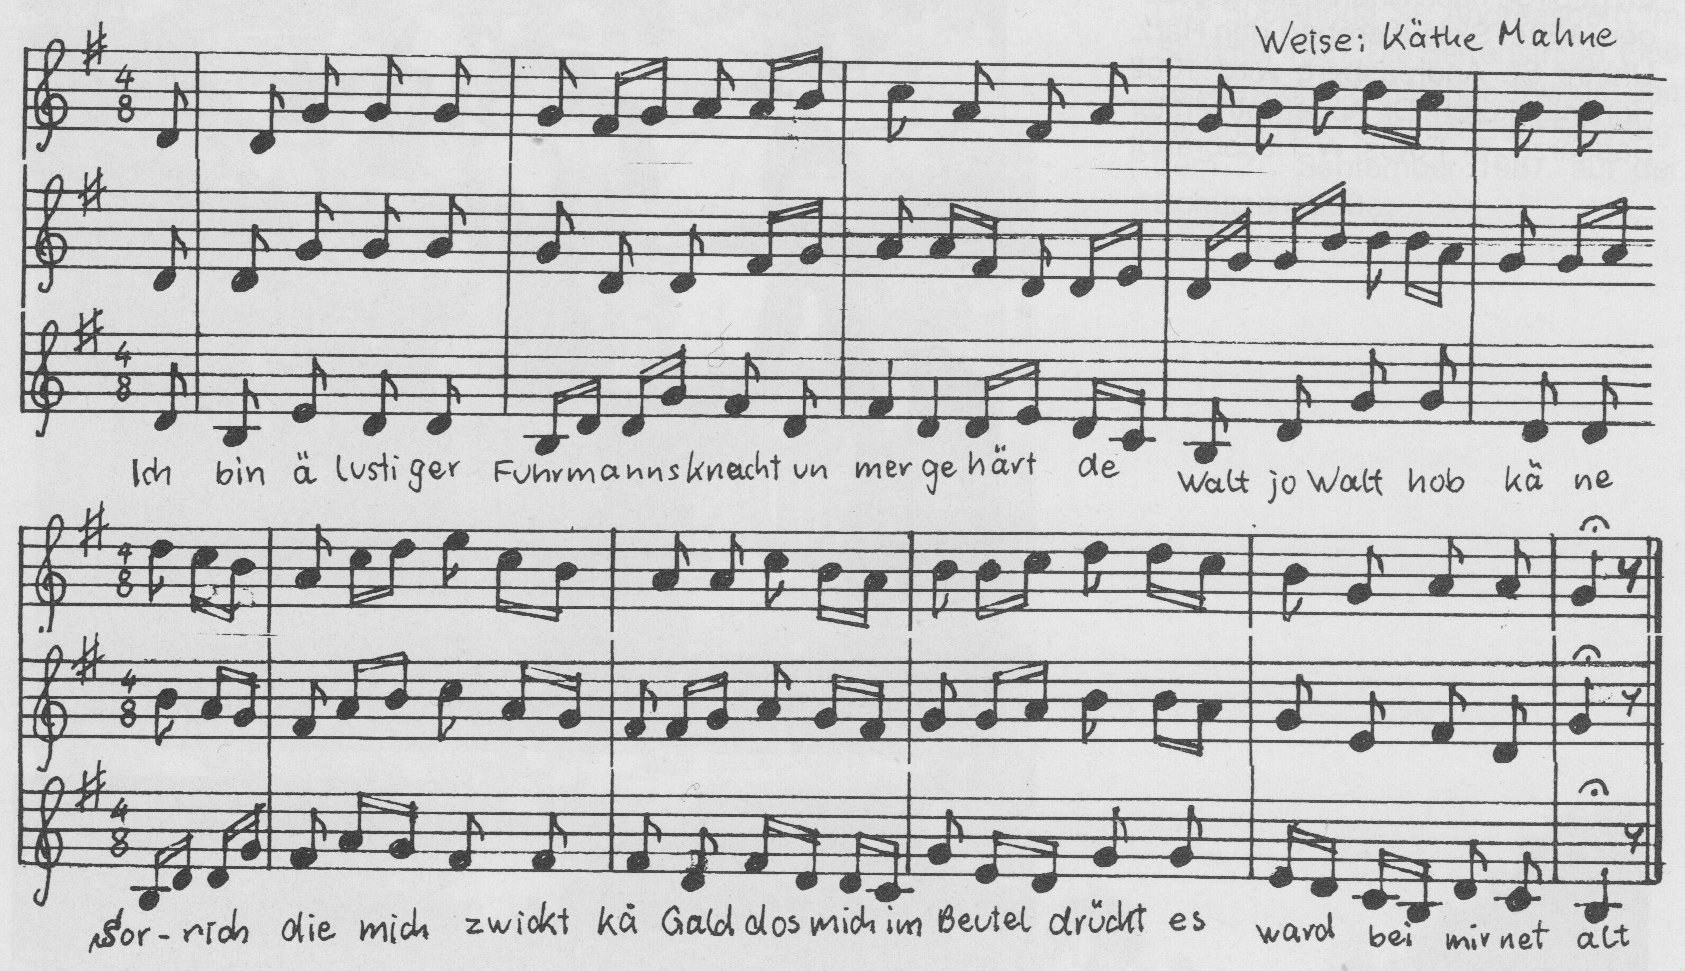 Weise: Käthe Mahne
4 8
4 8
Ich bin ä lustiger Fuhrmannsknecht un mer gehärt de Walt jo Walt hob kä ne
4 8
4 8
4 8
Sor-nich die mich zwickt kä Gald dos mich im Beutel drückt es ward bei mir net alt